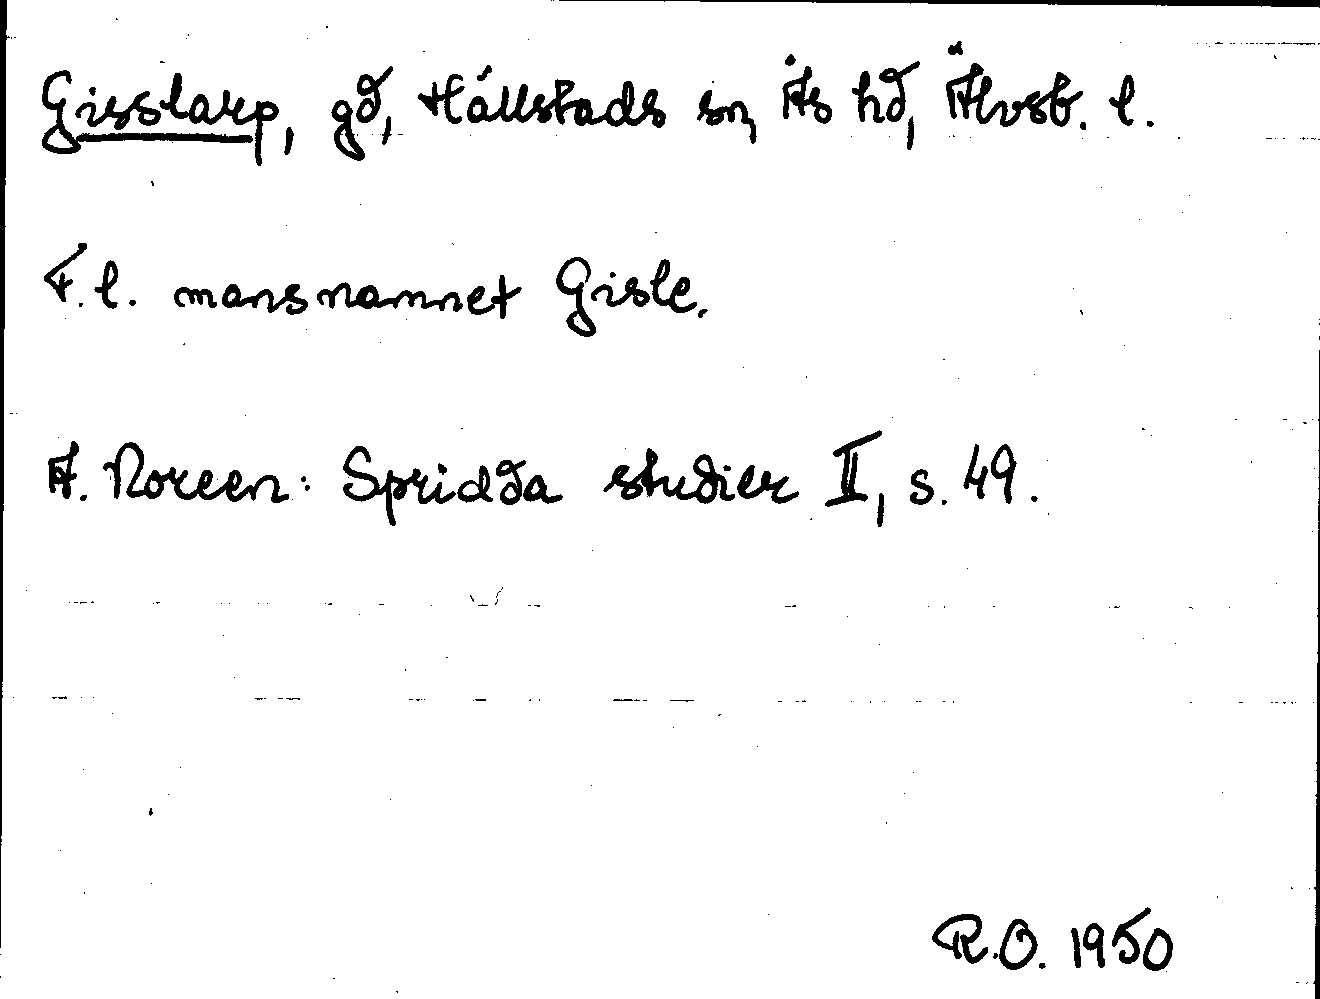 Gisslarp, gd, Hällstads sn, Ås hd, Älvsb. l.
F.l. mansnamnet Gisle.
A. Noreen: Spridda studier II, s. 49.
R.O. 1950